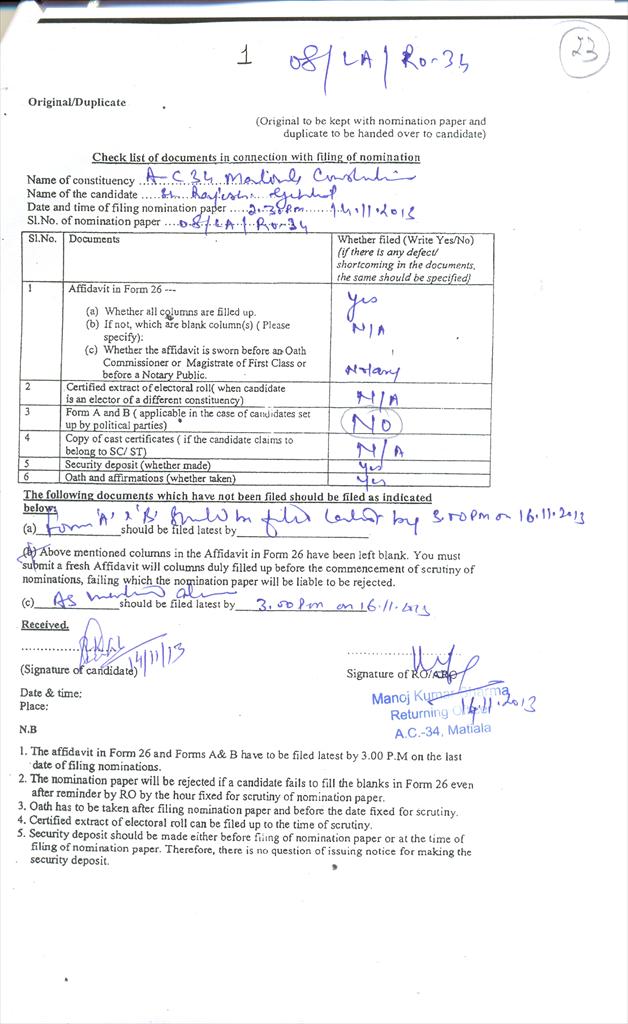 1 08/LA/RO-34 23
Original/Duplicate
(Original to be kept with nomination paper and
duplicate to be handed over to candidate)
Check list of documents in connection with filing of nomination
Name of constituency A-C 34 Matiala
Name of the candidate .....Sh. Rajesh
Date and time of filing nomination paper ....2.30 Pm......14.11.2013
Sl.No. of nomination paper ....08/LA/RO-34
Sl.No. Documents Whether filed (Write Yes/No)
(if there is any defect/
shortcoming in the documents,
the same should be specified)
1 Affidavit in Form 26 ---
(a) Whether all columns are filled up. Yes
(b) If not, which are blank column(s) ( Please N/A
specify):
(c) Whether the affidavit is sworn before an Oath
Commissioner or Magistrate of First Class or Notary
before a Notary Public.
2 Certified extract of electoral roll( when candidate N/A
is an elector of a different constituency)
3 Form A and B ( applicable in the case of candidates set NO
up by political parties)
4 Copy of cast certificates ( if the candidate claims to N/A
belong to SC/ ST)
5 Security deposit (whether made) Yes
6 Oath and affirmations (whether taken) Yes
The following documents which have not been filed should be filed as indicated
below
Form 'A' & 'B' should be filed latest by 3.00 Pm on 16.11.2013
(a)____________should be filed latest by____________
(b) Above mentioned columns in the Affidavit in Form 26 have been left blank. You must
submit a fresh Affidavit will columns duly filled up before the commencement of scrutiny of
nominations, failing which the nomination paper will be liable to be rejected.
(c) As should be filed latest by 3.00 Pm on 16.11.2013
Received.
14/11/13
(Signature of candidate) Signature of RO/ARO
Date & time: Manoj Kumar Sharma
Place: Returning 14.11.2013
A.C.-34, Matiala
N.B
1. The affidavit in Form 26 and Forms A& B have to be filed latest by 3.00 P.M on the last
date of filing nominations.
2. The nomination paper will be rejected if a candidate fails to fill the blanks in Form 26 even
after reminder by RO by the hour fixed for scrutiny of nomination paper.
3. Oath has to be taken after filing nomination paper and before the date fixed for scrutiny.
4. Certified extract of electoral roll can be filed up to the time of scrutiny.
5. Security deposit should be made either before filing of nomination paper or at the time of
filing of nomination paper. Therefore, there is no question of issuing notice for making the
security deposit.